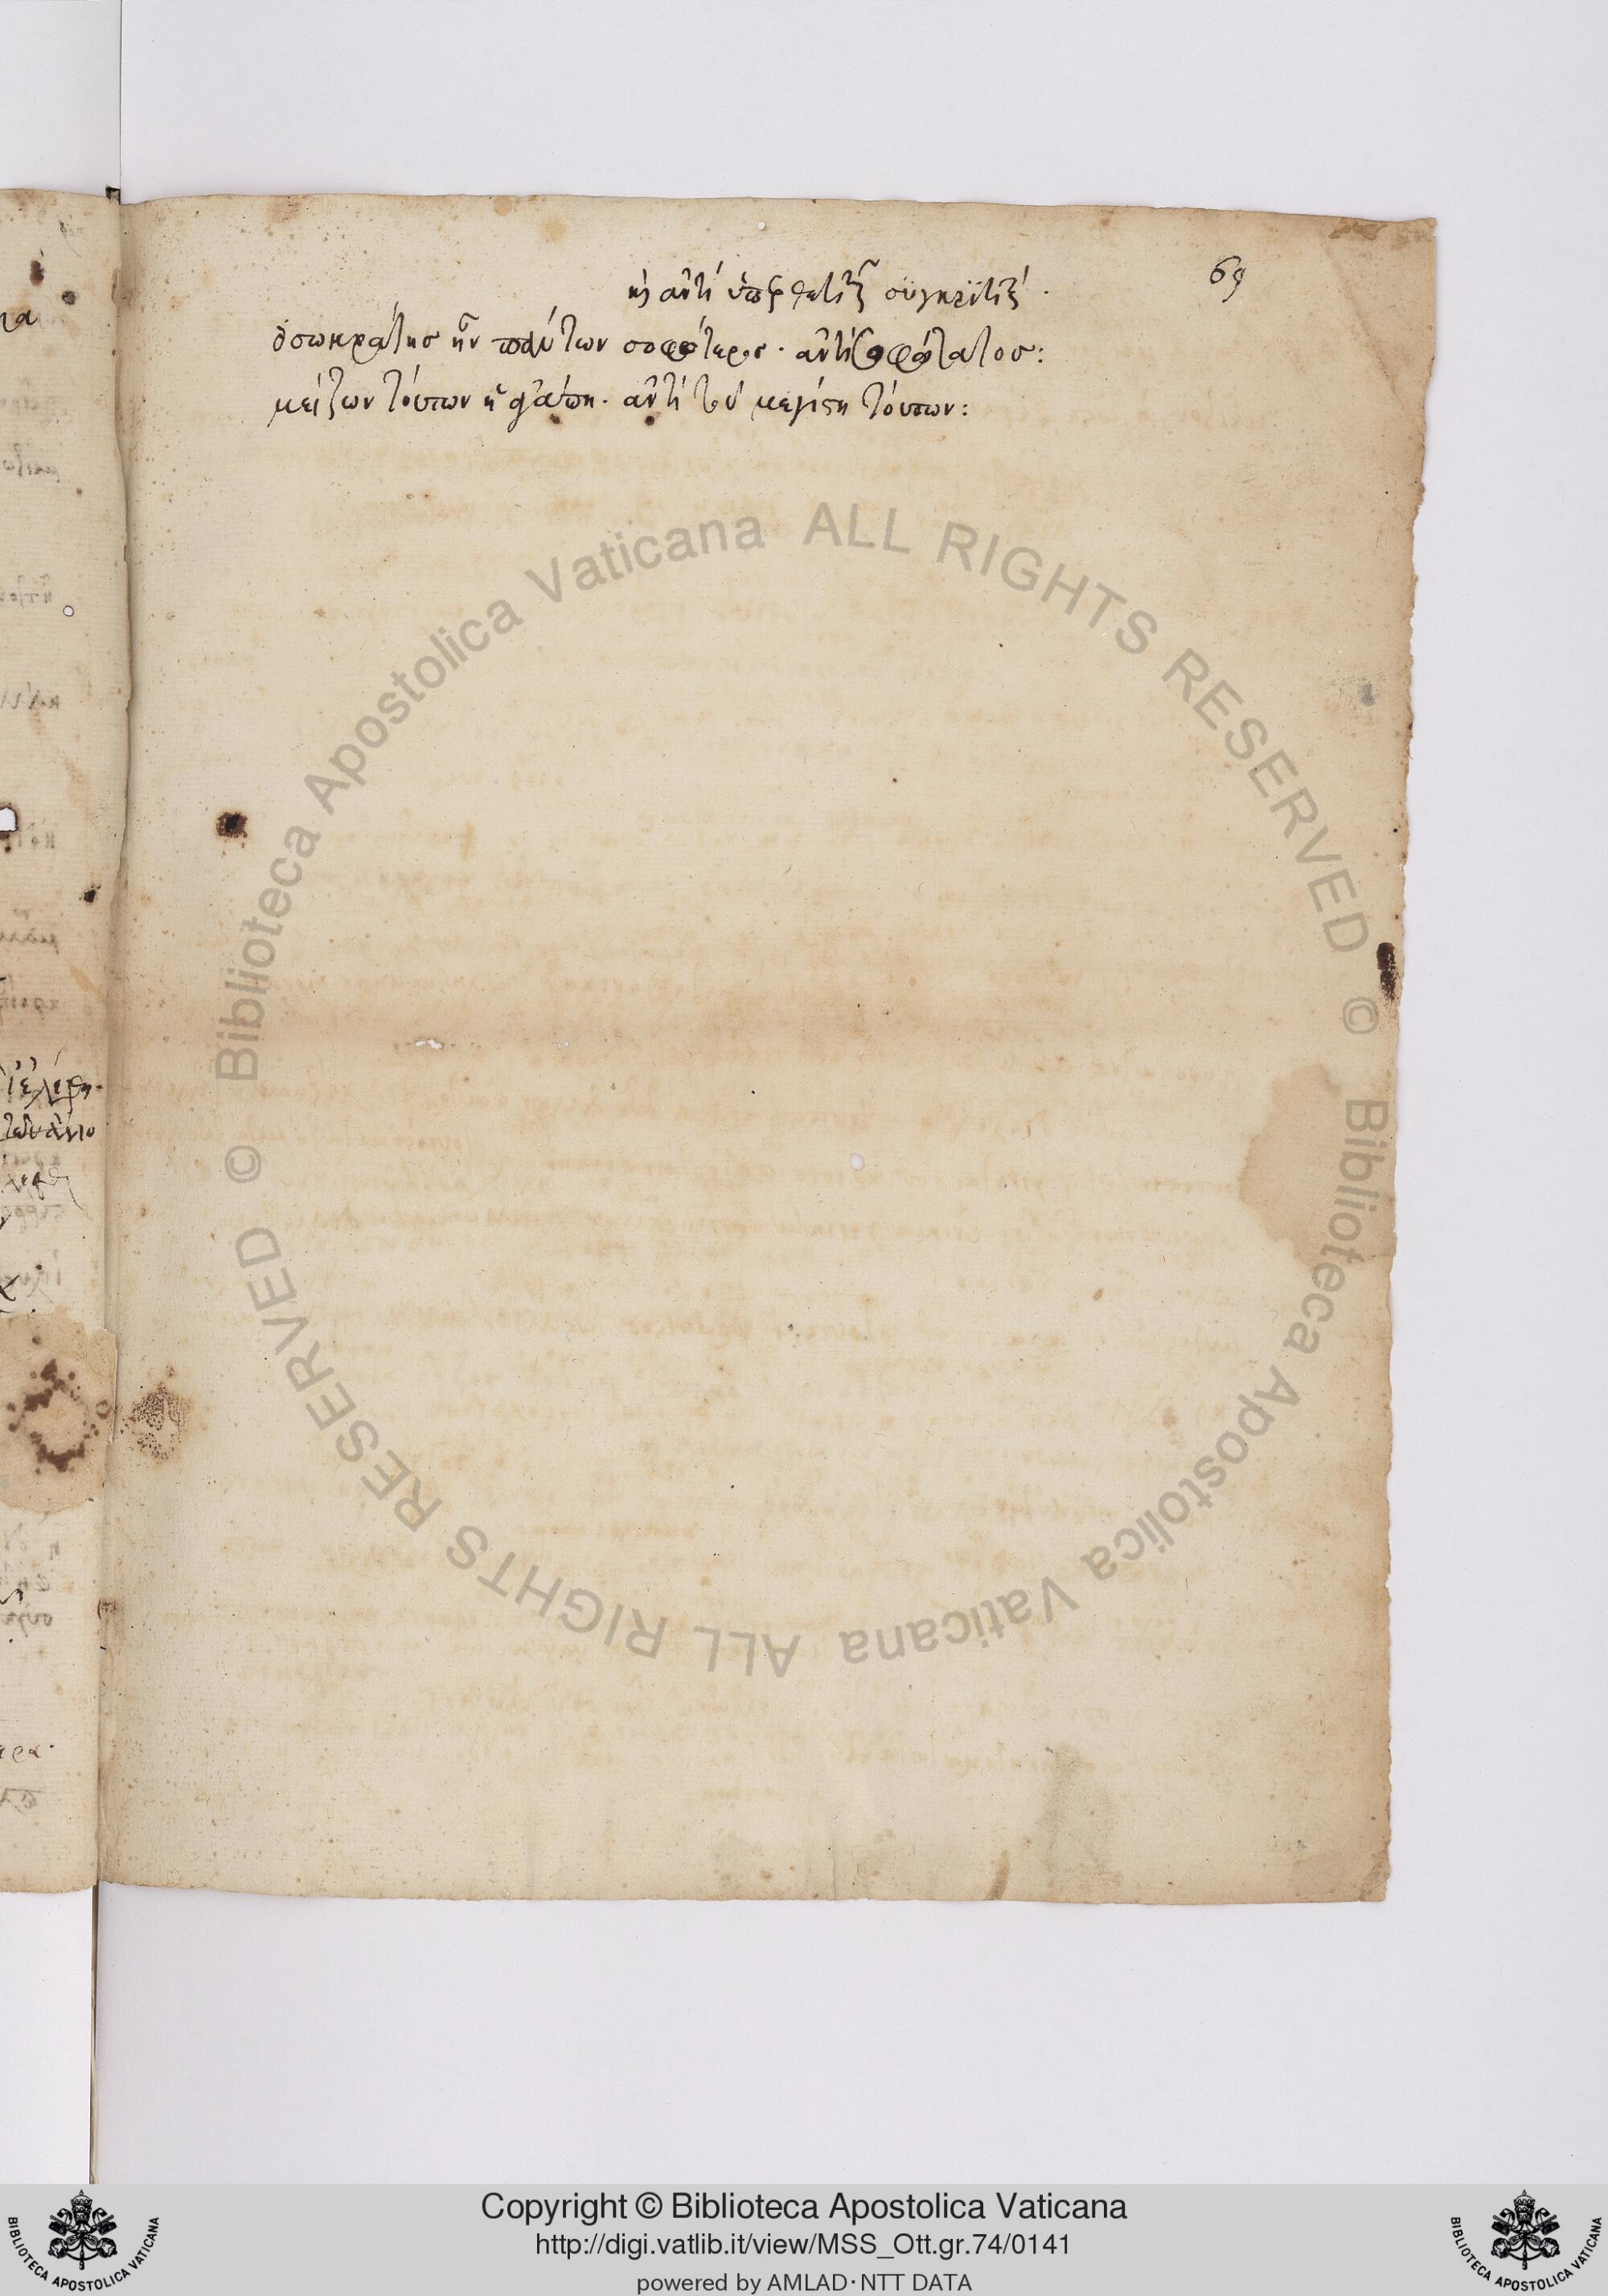 69
καὶ ἀντὶ ὑπερθετικοῦ συγκριτικά ·
ὁ σωκράτης ἦν πάντων σοφώτερος · ἀντὶ σοφώτατος :
μείζων τούτων ἡ ἀγάπη · ἀντὶ τοῦ μεγίστη τούτων :
© Biblioteca Apostolica Vaticana ALL RIGHTS RESERVED
© Biblioteca Apostolica Vaticana ALL RIGHTS RESERVED
BIBLIOTECA APOSTOLICA VATICANA
Copyright © Biblioteca Apostolica Vaticana
http://digi.vatlib.it/view/MSS_Ott.gr.74/0141
powered by AMLAD·NTT DATA
BIBLIOTECA APOSTOLICA VATICANA